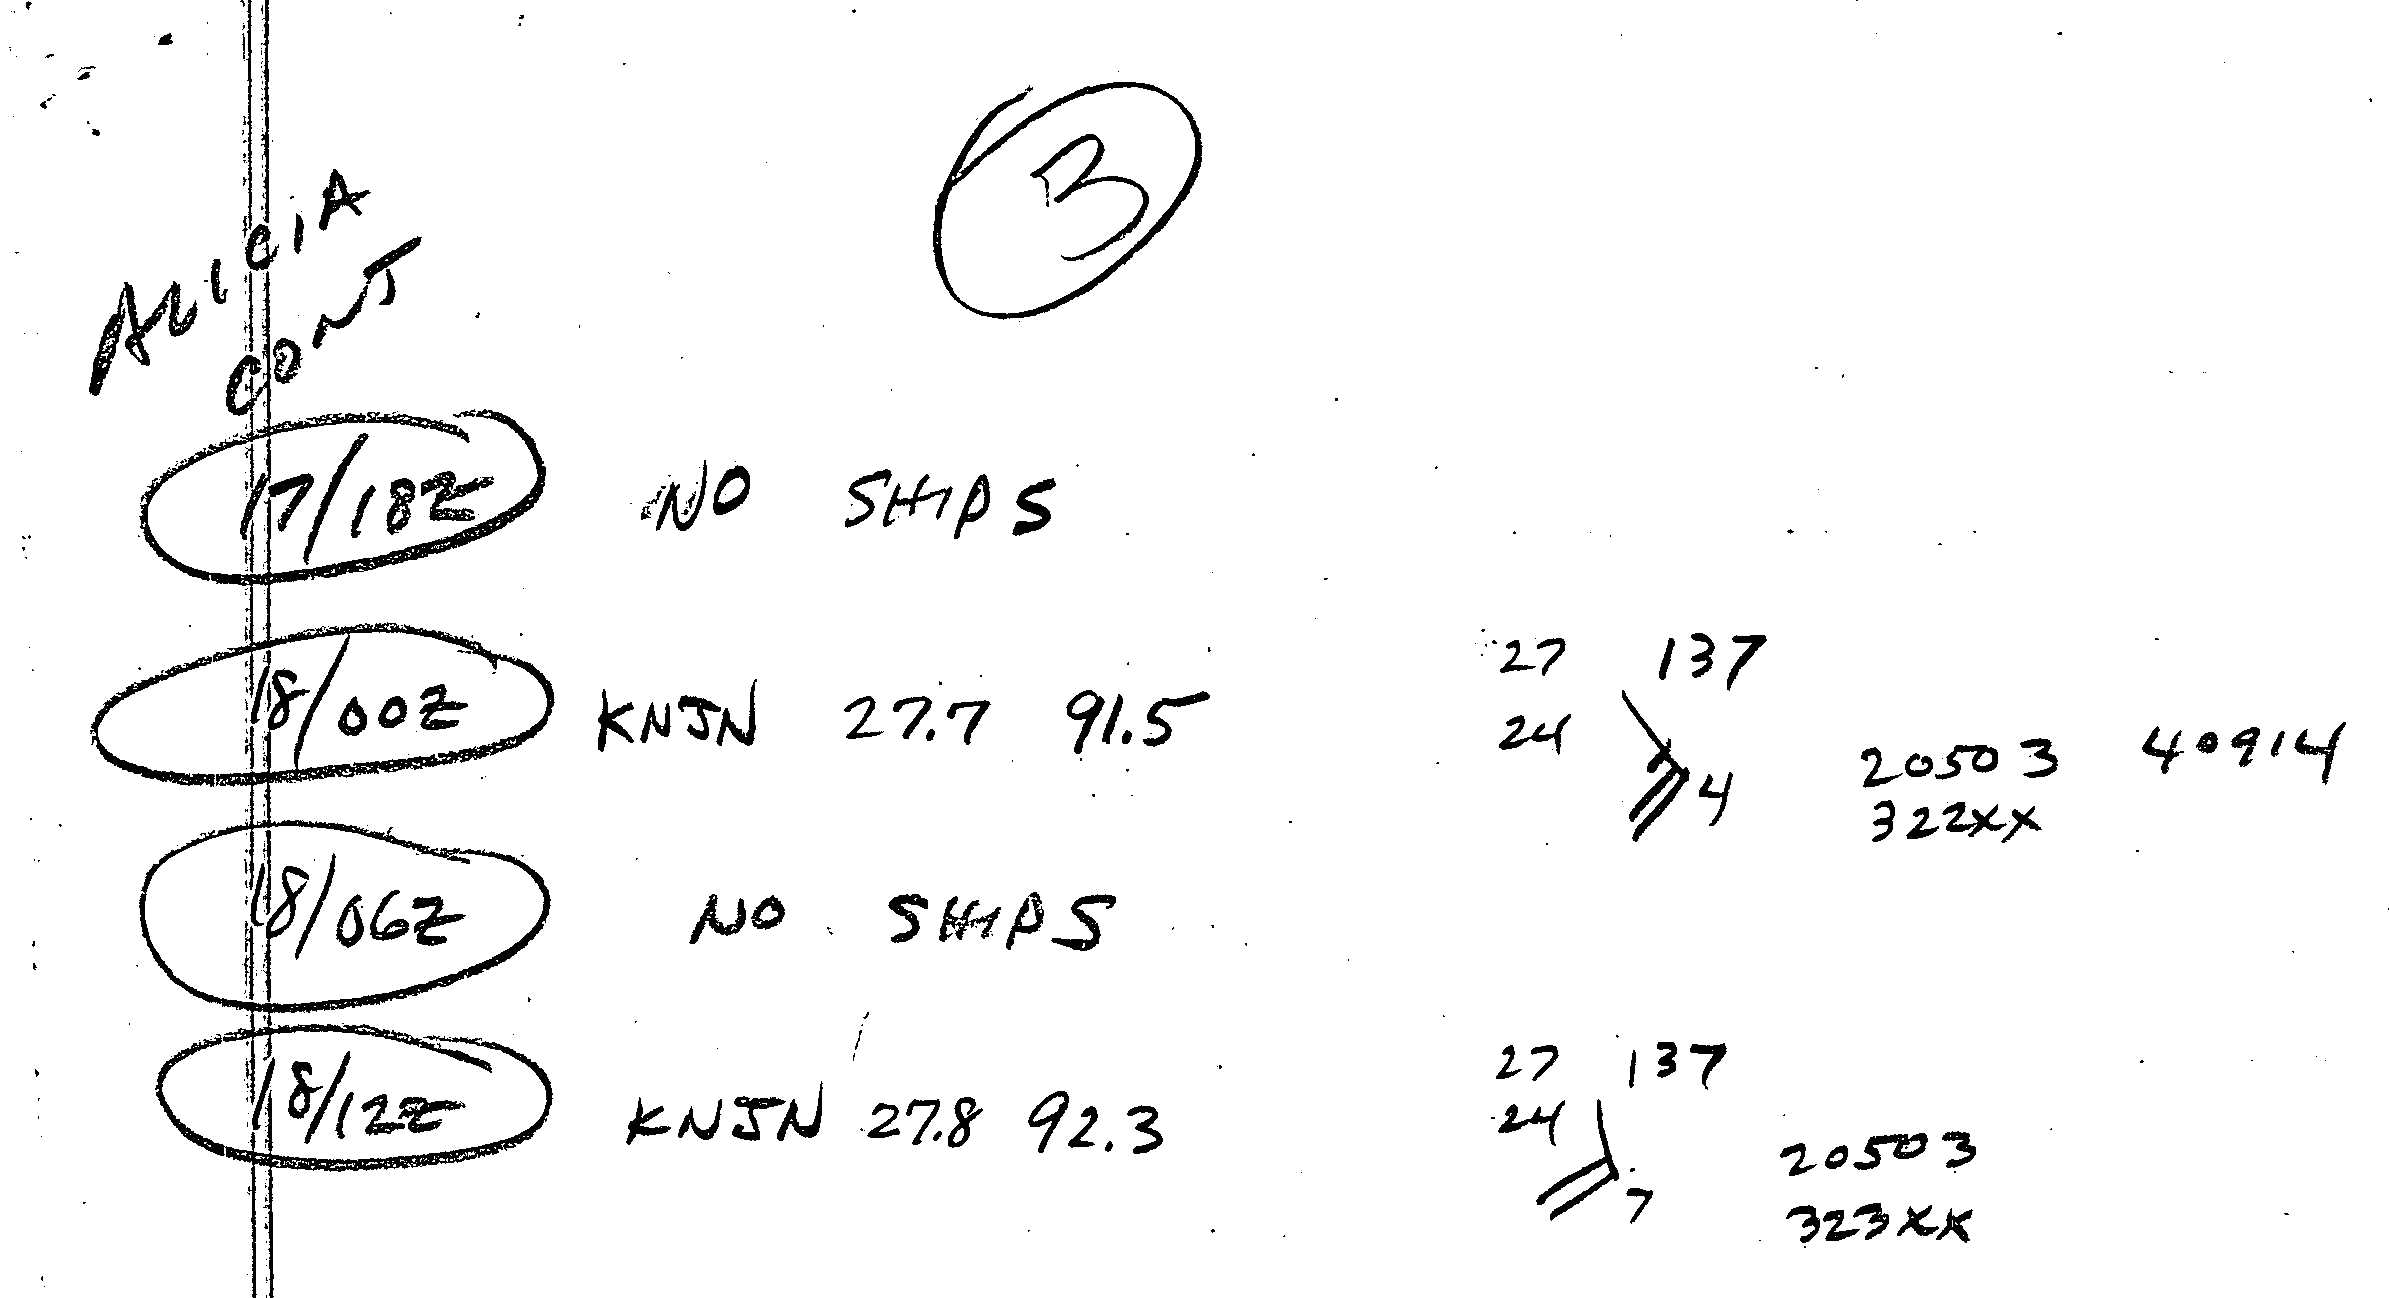 3
ALICIA
CONT
17/18Z NO SHIPS
27 137
18/00Z KNJN 27.7 91.5 24 4 20503 40914
322XX
18/06Z NO SHIPS
27 137
18/12Z KNJN 27.8 92.3 24 7 20503
323XX